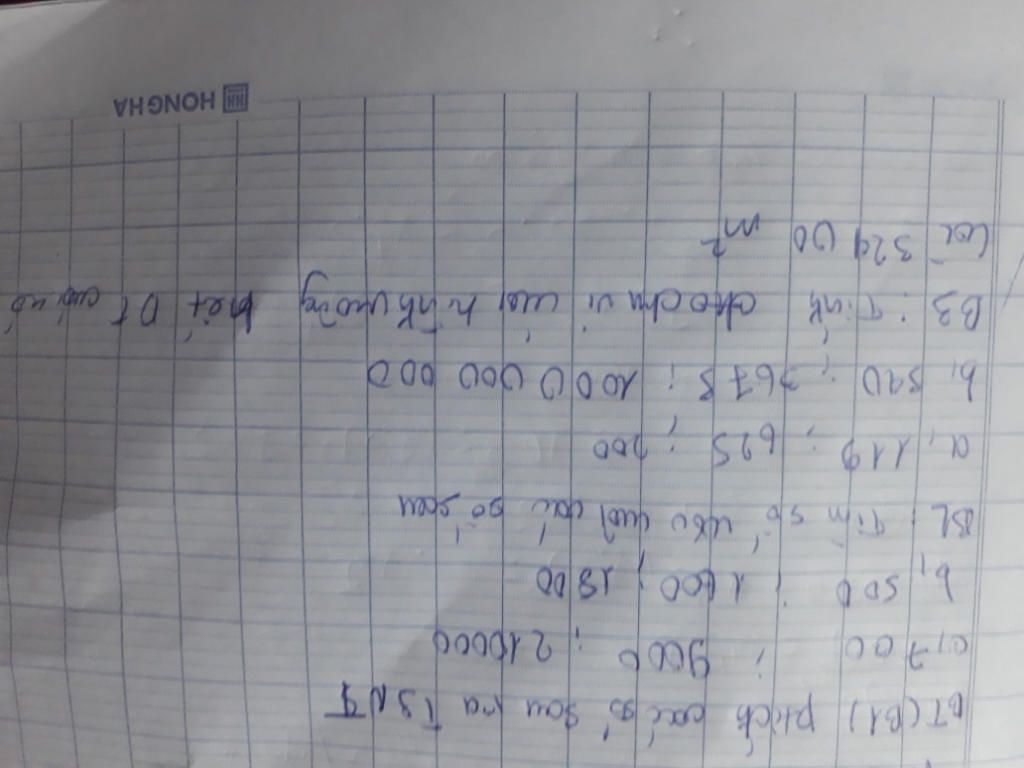 BT(B1) ptích các số sau ra TSNT
a, 700 ; 9000 ; 210000
b, 500 ; 1600 ; 1800
B2: Tìm số ước của các số sau
a, 119 ; 625 ; 200
b, 540 ; 3675 ; 1000 000 000
B3: Tính cho chu vi của hình vuông biết DT của nó
Là 32400 m²
HONG HA